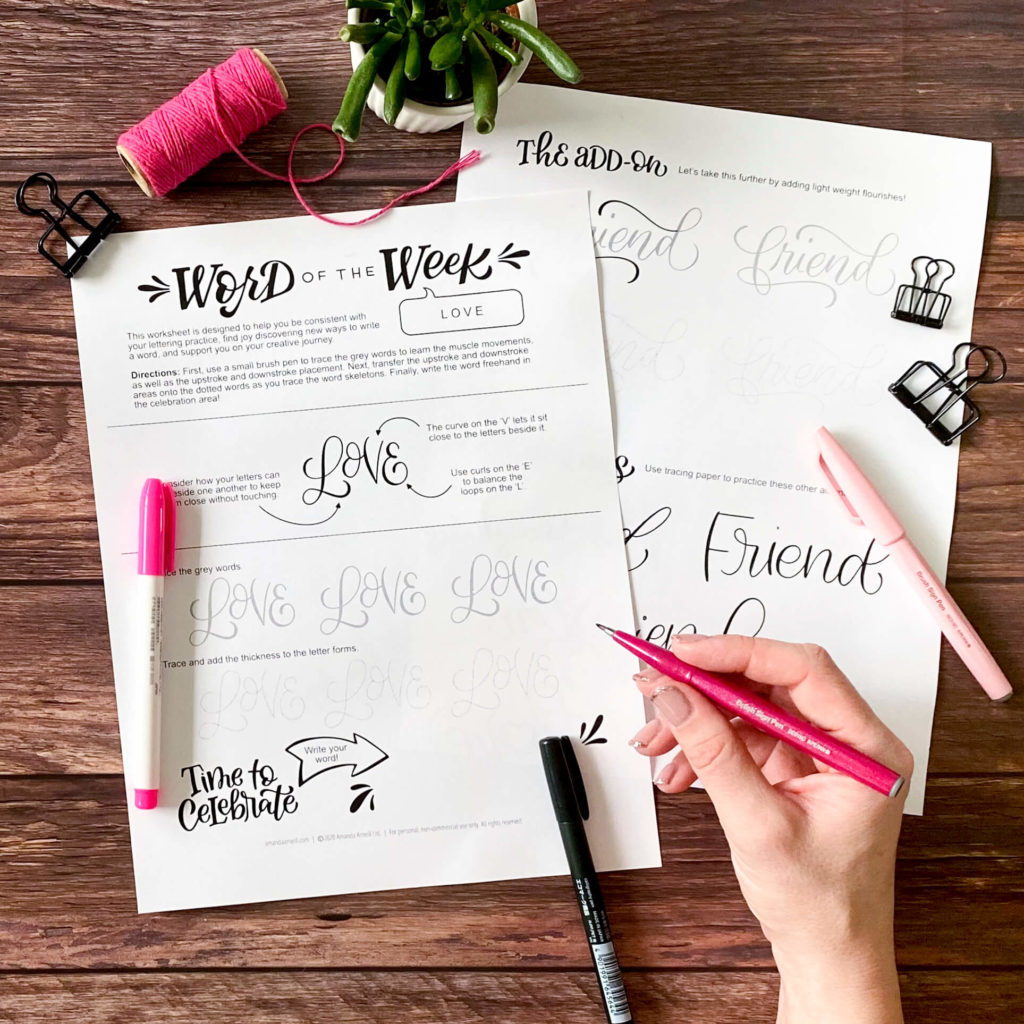 The ADD-ON Let's take this further by adding light weight flourishes!
friend friend
WORD OF THE WEEK
LOVE
This worksheet is designed to help you be consistent with
your lettering practice, find joy discovering new ways to write
a word, and support you on your creative journey
Directions: First, use a small brush pen to trace the grey words to learn the muscle movements,
as well as the upstroke and downstroke placement. Next, transfer the upstroke and downstroke
areas onto the dotted words as you trace the word skeletons. Finally, write the word freehand in
the celebration area!
The curve on the 'V' lets it sit
close to the letters beside it.
LOVE
how your letters can
one another to keep
close without touching.
Use curls on the 'E'
to balance the
loops on the 'L'
the grey words
LOVE LOVE LOVE
Trace and add the thickness to the letter forms.
LOVE LOVE LOVE
Write your
word!
Time to
Celebrate
amandaarneill.com | © 2020 Amanda Arneill Ltd. | For personal, non-commercial use only. All rights reserved.
Use tracing paper to practice these other
Friend
Brush Sign Pen
Brush Sign Pen